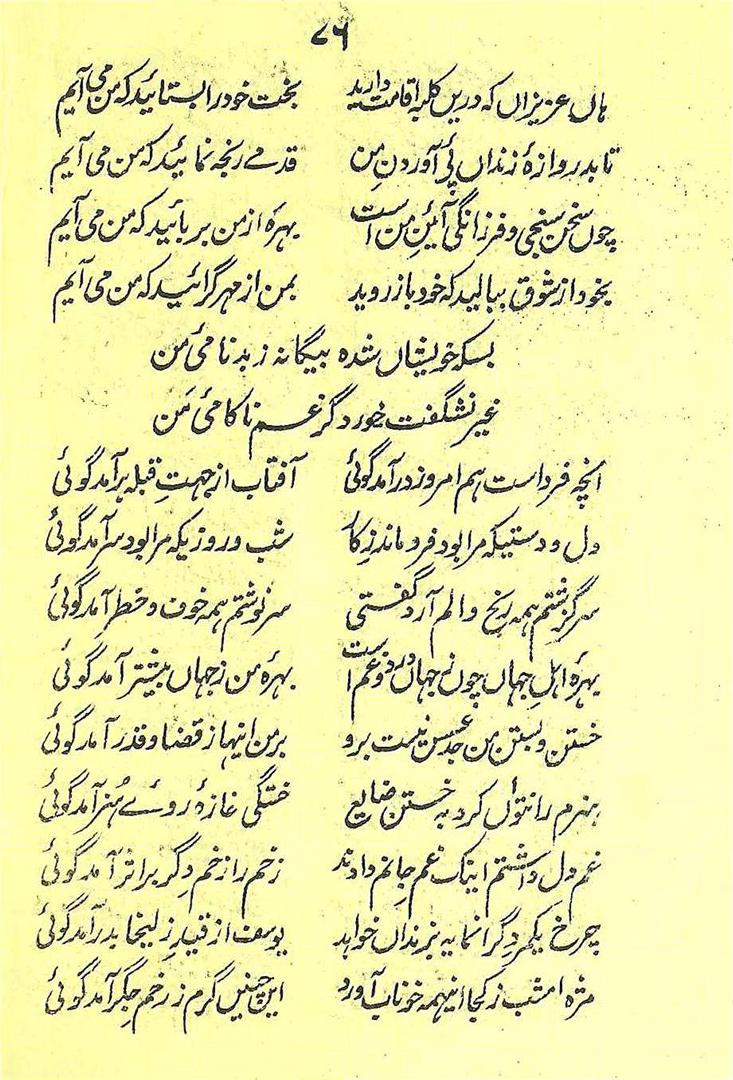 ۸۶
ہاں عزیزاں کہ دریں کلبہ اقامت دارید بخت خود را بستائید کہ من می آیم
تا بدروازۂ زنداں پئے آوردنِ من قدمے رنجہ نمائید کہ من می آیم
چوں سخن سنجی و فرزانگی آئینِ من است بہرہ از من بربائید کہ من می آیم
بخود از شوق ببالید کہ خود باز روید بمن از مہر گرائید کہ من می آیم
بسکہ خویشاں شدہ بیگانہ ز بدنامیٔ من
غیر نشگفت خورد گر غم ناکامیٔ من
آنچہ فرداست ہم امروز درآمد گوئی آفتاب از جہتِ قبلہ برآمد گوئی
دل و دستیکہ مرا بود فروماند ز کار شب و روزیکہ مرا بود سرآمد گوئی
سرگزشتم ہمہ رنج و الم آرد گفتی سرنوشتم ہمہ خوف و خطر آمد گوئی
بہرۂ اہلِ جہاں چوں ز جہاں درد و غم است بہرۂ من ز جہاں بیشتر آمد گوئی
خستن و بستن من حد عسس نیست برو بر من اینہا ز قضا و قدر آمد گوئی
ہنرم را نتواں کرد بہ خستن ضایع خستگی غازۂ روئے ہُنر آمد گوئی
غم دل داشتم اینک غم جانم دادند زخم را زخم دِگر براثر آمد گوئی
چرخ یکمرد گرانمایہ بزنداں خواہد یوسف از قیدِ زلیخا بدر آمد گوئی
مژہ امشب ز کجا اینہمہ خوناب آورد این چنیں گرم ز زخم جگر آمد گوئی